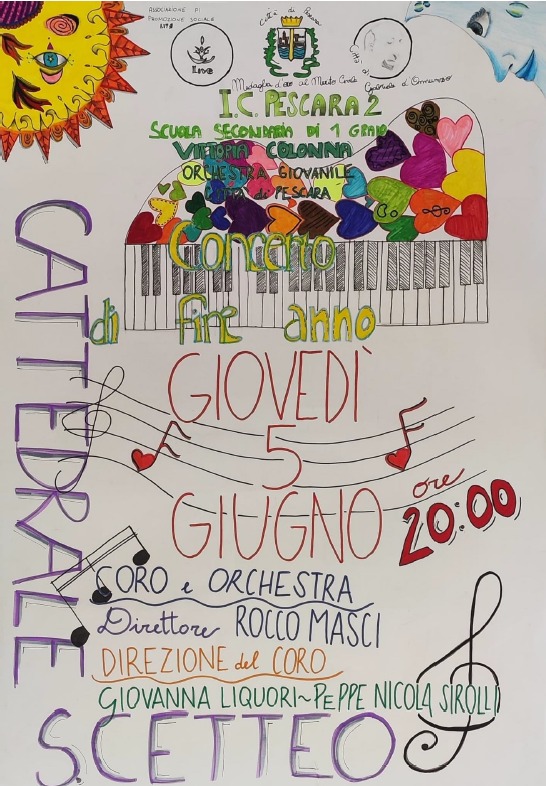 ASSOCIAZIONE DI
PROMOZIONE SOCIALE
Live
Città di Pescara
Medaglia d'oro al Merito Civile
Città
Gabriele d'Annunzio
I.C. PESCARA 2
SCUOLA SECONDARIA DI 1 GRADO
VITTORIA COLONNA
ORCHESTRA GIOVANILE
CITTÀ di PESCARA
Concerto
di fine anno
GIOVEDÌ
5
GIUGNO
ore
20:00
CATTEDRALE
CORO e ORCHESTRA
Direttore ROCCO MASCI
DIREZIONE del CORO
GIOVANNA LIQUORI~PEPPE NICOLA SIROLLI
S.CETTEO